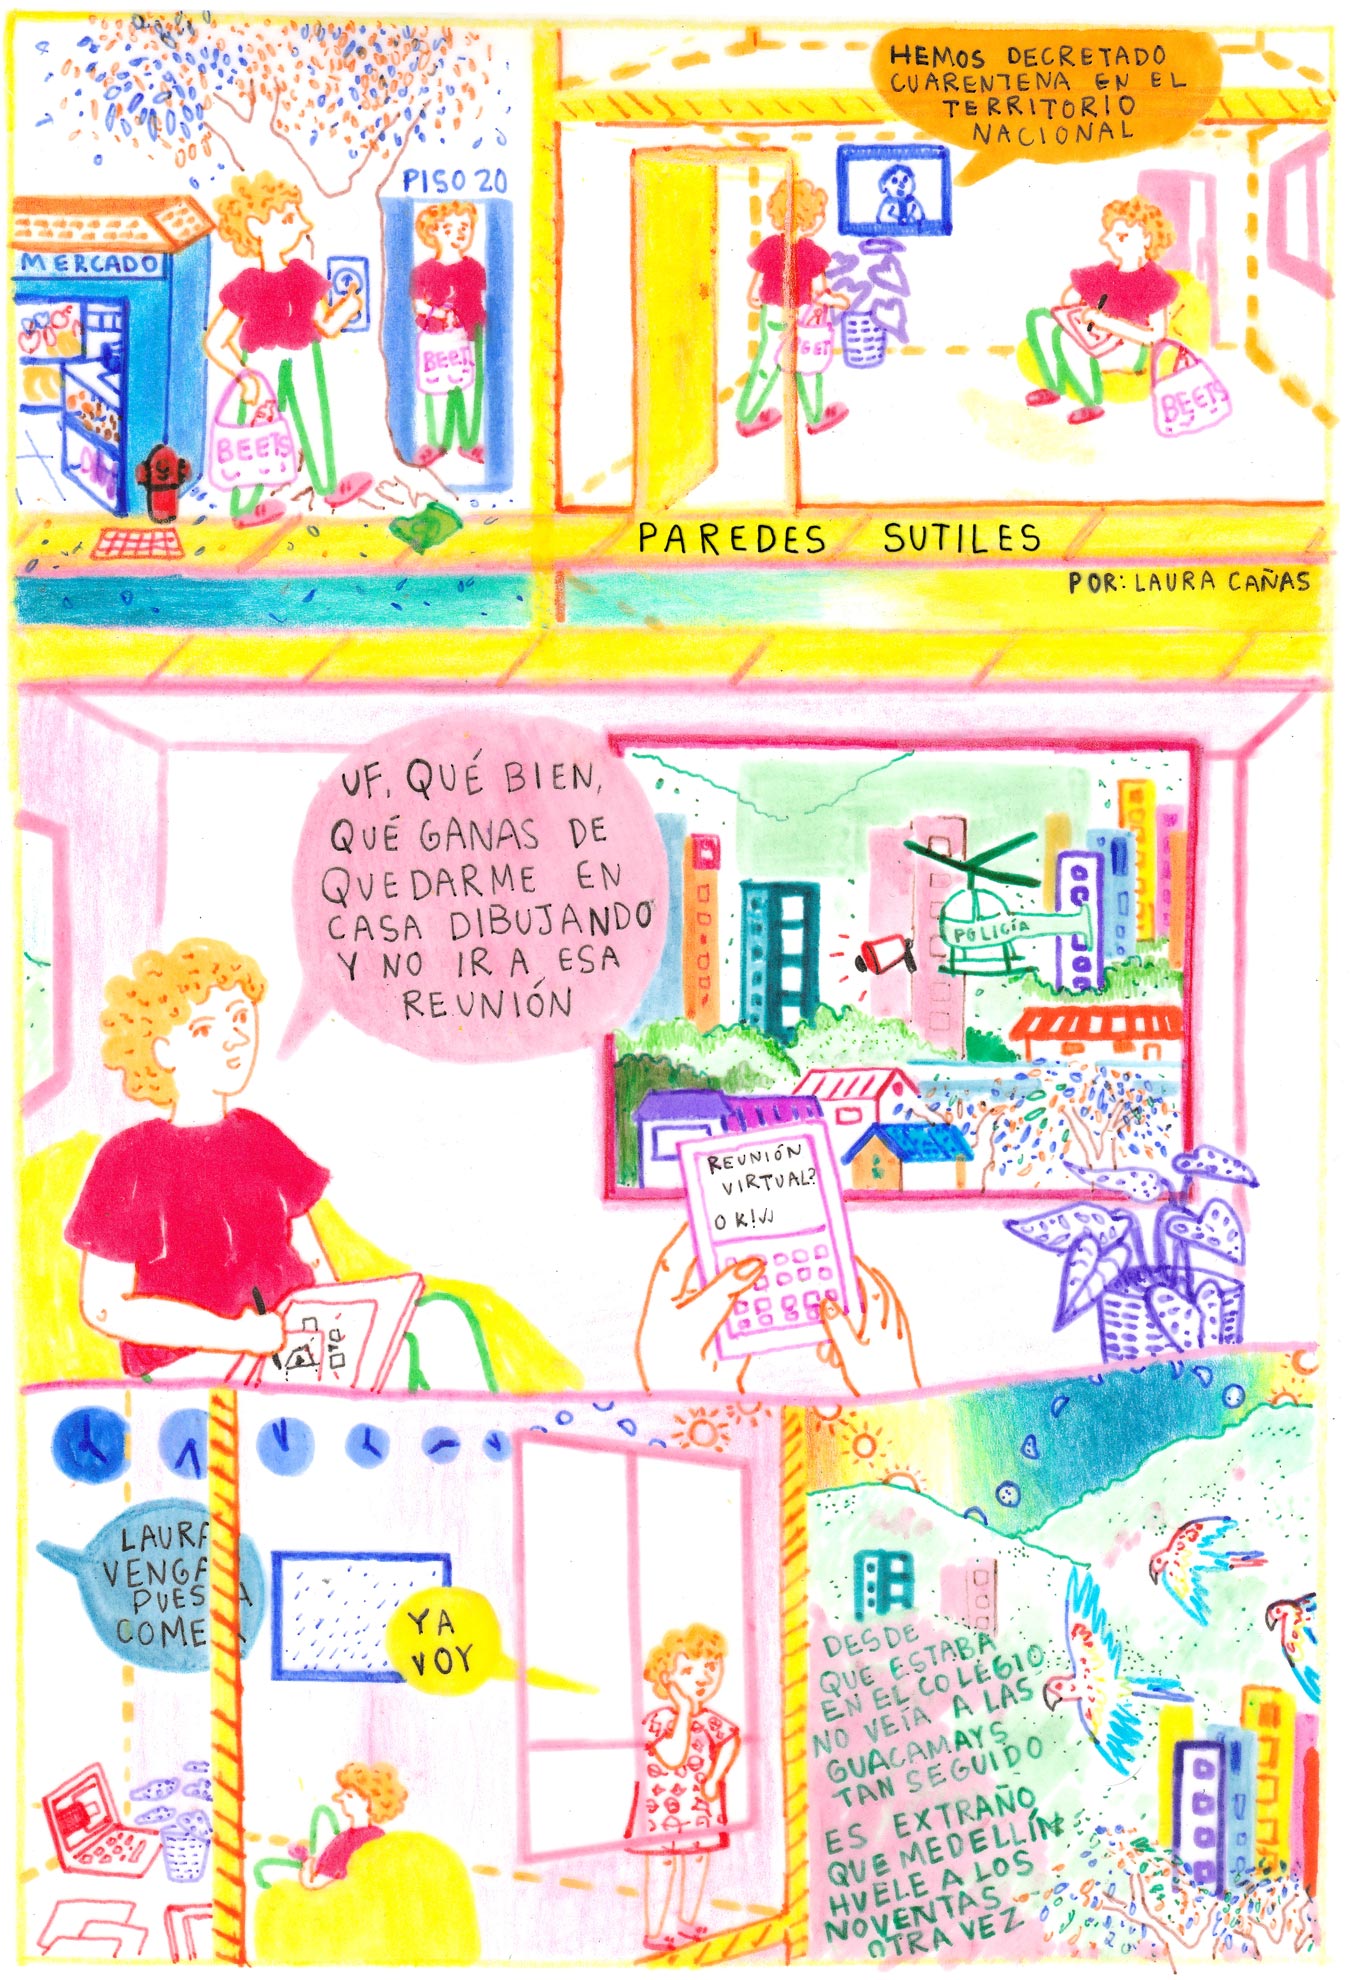 MERCADO
PISO 20
BEETS
BEETS
HEMOS DECRETADO
CUARENTENA EN EL
TERRITORIO
NACIONAL
BEETS
PAREDES SUTILES
POR: LAURA CAÑAS
UF, QUÉ BIEN,
QUÉ GANAS DE
QUEDARME EN
CASA DIBUJANDO
Y NO IR A ESA
REUNIÓN
POLICÍA
REUNIÓN
VIRTUAL?
OK!
VENGA
PUES A
YA
VOY
DESDE
QUE ESTABA
EN EL COLEGIO
NO VEÍA A LAS
GUACAMAYS
TAN SEGUIDO
ES EXTRAÑO
QUE MEDELLÍN
HUELE A LOS
NOVENTAS
OTRA VEZ